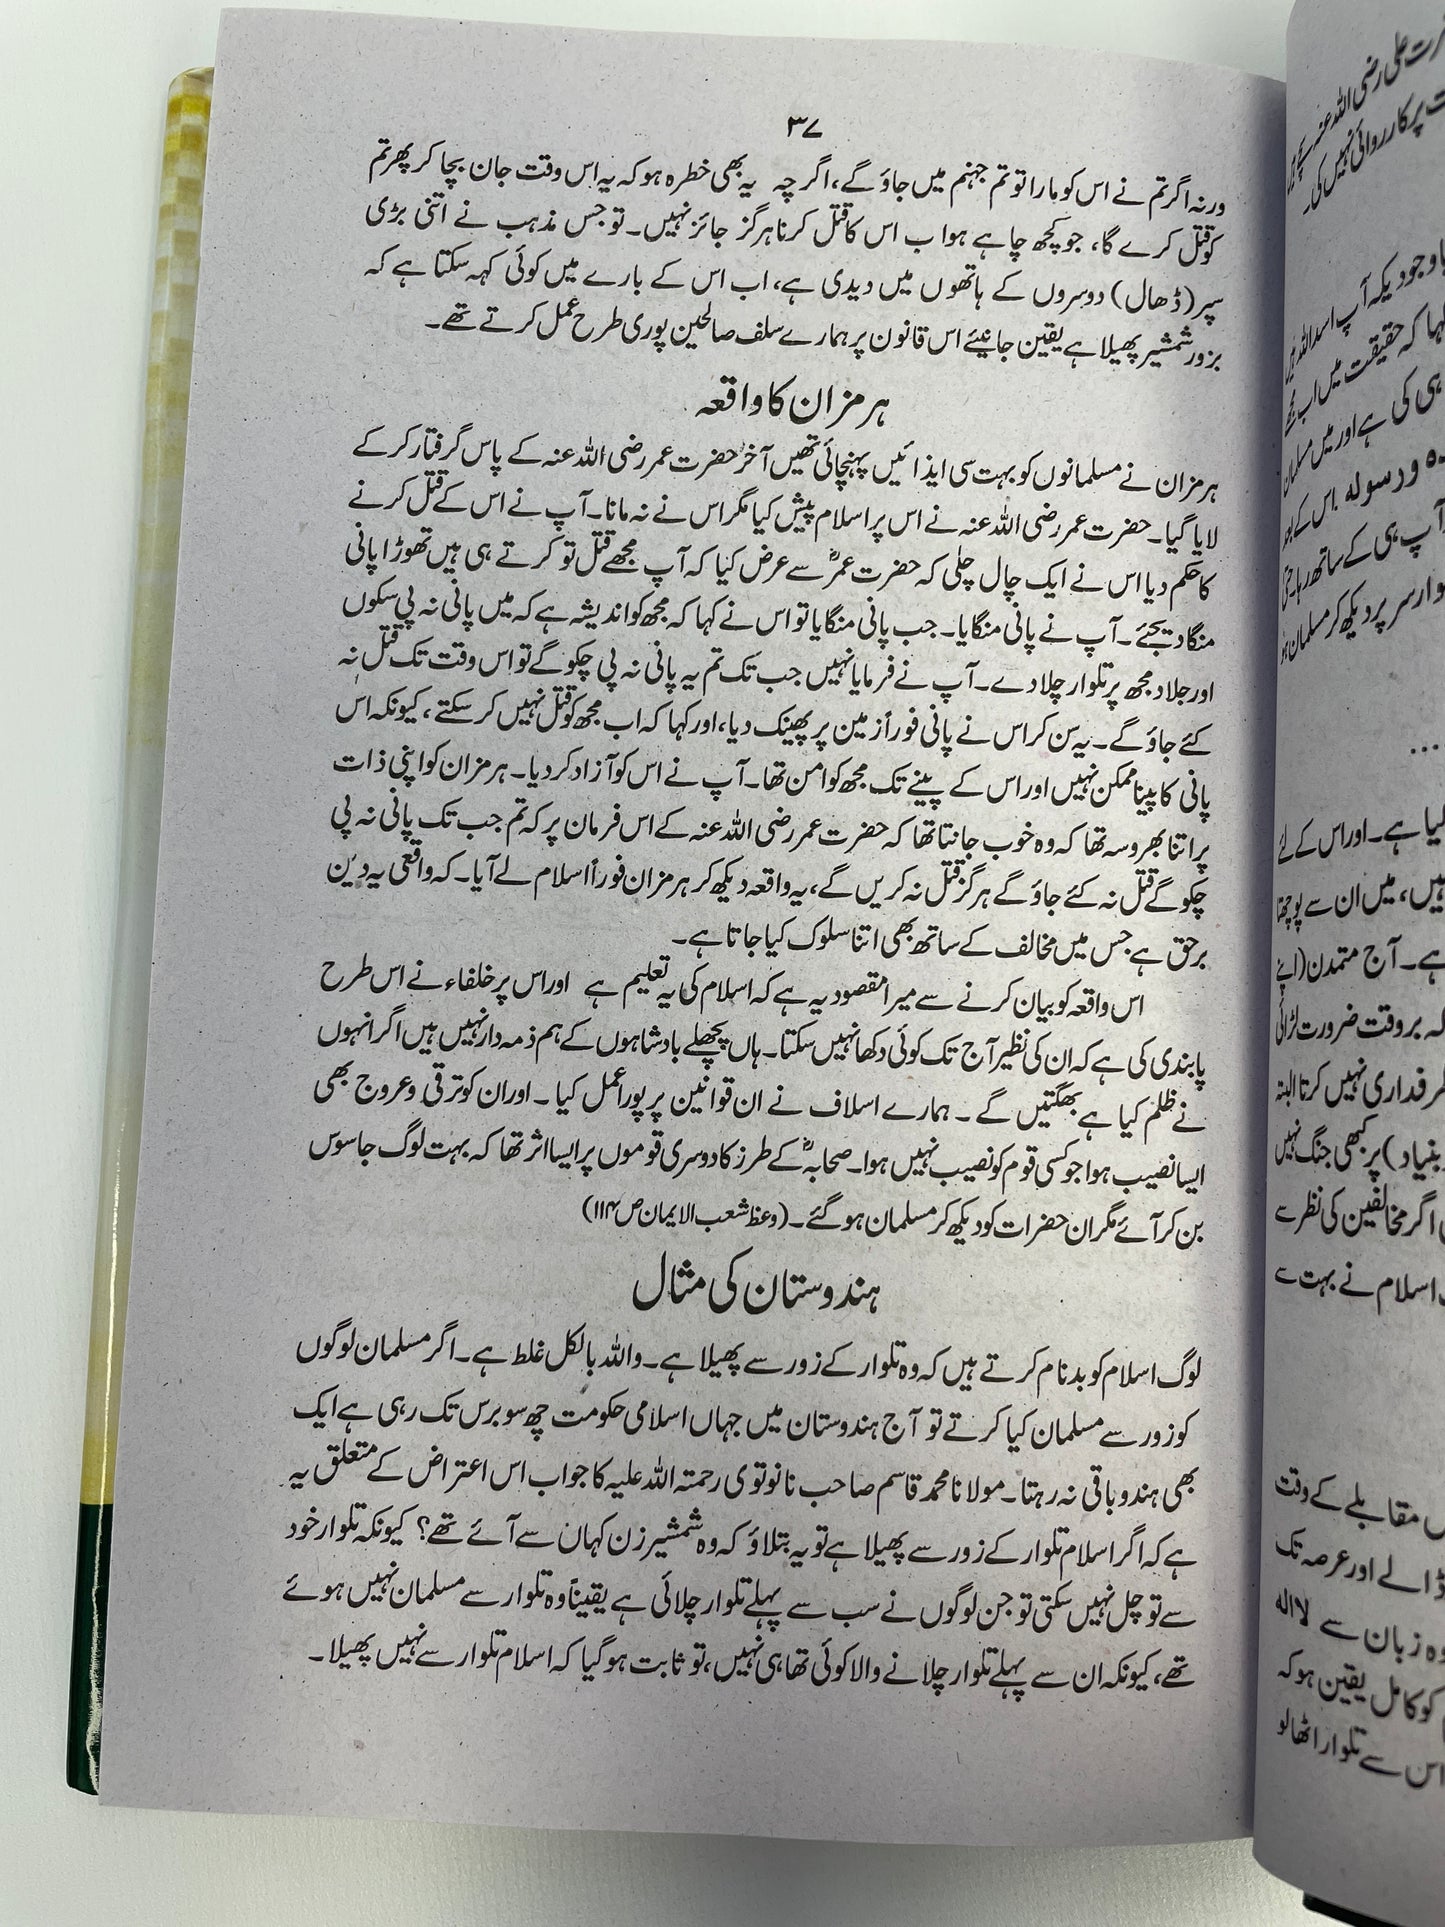 ۳۷
ورنہ اگر تم نے اس کو مارا تو تم جہنم میں جاؤ گے، اگر چہ یہ بھی خطرہ ہو کہ یہ اس وقت جان بچا کر پھر تم
کو قتل کرے گا، جو کچھ چاہے ہو اب اس کا قتل کرنا ہرگز جائز نہیں۔ تو جس مذہب نے اتنی بڑی
سپر (ڈھال) دوسروں کے ہاتھوں میں دیدی ہے، اب اس کے بارے میں کوئی کہہ سکتا ہے کہ
بزور شمشیر پھیلا ہے یقین جانیئے اس قانون پر ہمارے سلف صالحین پوری طرح عمل کرتے تھے۔
ہرمزان کا واقعہ
ہرمزان نے مسلمانوں کو بہت سی ایذائیں پہنچائی تھیں آخر حضرت عمر رضی اللہ عنہ کے پاس گرفتار کر کے
لایا گیا۔ حضرت عمر رضی اللہ عنہ نے اس پر اسلام پیش کیا مگر اس نے نہ مانا۔ آپ نے اس کے قتل کرنے
کا حکم دیا اس نے ایک چال چلی کہ حضرت عمرؓ سے عرض کیا کہ آپ مجھے قتل تو کرتے ہی ہیں تھوڑا پانی
منگا دیجئے۔ آپ نے پانی منگایا۔ جب پانی منگایا تو اس نے کہا کہ مجھ کو اندیشہ ہے کہ میں پانی نہ پی سکوں
اور جلاد مجھ پر تلوار چلا دے۔ آپ نے فرمایا نہیں جب تک تم یہ پانی نہ پی چکو گے تو اس وقت تک قتل نہ
کئے جاؤ گے۔ یہ سن کر اس نے پانی فوراً زمین پر پھینک دیا، اور کہا کہ اب مجھ کو قتل نہیں کر سکتے، کیونکہ اس
پانی کا پینا ممکن نہیں اور اس کے پینے تک مجھ کو امن تھا۔ آپ نے اس کو آزاد کر دیا۔ ہرمزان کو اپنی ذات
پر اتنا بھروسہ تھا کہ وہ خوب جانتا تھا کہ حضرت عمر رضی اللہ عنہ کے اس فرمان پر کہ تم جب تک پانی نہ پی
چکو گے قتل نہ کئے جاؤ گے ہرگز قتل نہ کریں گے، یہ واقعہ دیکھ کر ہرمزان فوراً اسلام لے آیا۔ کہ واقعی یہ دین
برحق ہے جس میں مخالف کے ساتھ بھی اتنا سلوک کیا جاتا ہے۔
اس واقعہ کو بیان کرنے سے میرا مقصود یہ ہے کہ اسلام کی یہ تعلیم ہے اور اس پر خلفاء نے اس طرح
پابندی کی ہے کہ ان کی نظیر آج تک کوئی دکھا نہیں سکتا۔ ہاں پچھلے بادشاہوں کے ہم ذمہ دار نہیں ہیں اگر انہوں
نے ظلم کیا ہے بھگتیں گے۔ ہمارے اسلاف نے ان قوانین پر پورا عمل کیا۔ اور ان کو ترقی و عروج بھی
ایسا نصیب ہوا جو کسی قوم کو نصیب نہیں ہوا۔ صحابہؓ کے طرز کا دوسری قوموں پر ایسا اثر تھا کہ بہت لوگ جاسوس
بن کر آئے مگر ان حضرات کو دیکھ کر مسلمان ہو گئے۔ (وعظ شعب الایمان ص ۱۱۴)
ہندوستان کی مثال
لوگ اسلام کو بدنام کرتے ہیں کہ وہ تلوار کے زور سے پھیلا ہے۔ واللہ بالکل غلط ہے۔ اگر مسلمان لوگوں
کو زور سے مسلمان کیا کرتے تو آج ہندوستان میں جہاں اسلامی حکومت چھ سو برس تک رہی ہے ایک
بھی ہندو باقی نہ رہتا۔ مولانا محمد قاسم صاحب نانوتوی رحمتہ اللہ علیہ کا جواب اس اعتراض کے متعلق یہ
ہے کہ اگر اسلام تلوار کے زور سے پھیلا ہے تو یہ بتلاؤ کہ وہ شمشیر زن کہاں سے آئے تھے؟ کیونکہ تلوار خود
سے تو چل نہیں سکتی تو جن لوگوں نے سب سے پہلے تلوار چلائی ہے یقیناً وہ تلوار سے مسلمان نہیں ہوئے
تھے، کیونکہ ان سے پہلے تلوار چلانے والا کوئی تھا ہی نہیں، تو ثابت ہو گیا کہ اسلام تلوار سے نہیں پھیلا۔
رت علی رضی اللہ عنہ
پر کارروائی نہیں کی۔
وجودیکہ آپ اسد اللہ ہیں
کہ حقیقت میں اب
ہی کی ہے اور میں مسلمان
ورسولہ۔ اس کے بعد
آپ ہی کے ساتھ رہا۔
سر پر دیکھ کر مسلمان
...
کیا ہے۔ اور اس کے لئے
ہیں، میں ان سے پوچھتا
ہے۔ آج متمدن (اپنے
بر وقت ضرورت لڑائی
طرفداری نہیں کرتا البتہ
بنیاد) پر کبھی جنگ نہیں
اگر مخالفین کی نظر سے
اسلام نے بہت سے
مقابلے کے وقت
ڈالے اور عرصہ تک
وہ زبان سے لا الہ
کو کامل یقین ہو کہ
اس سے تلوار اٹھا لو